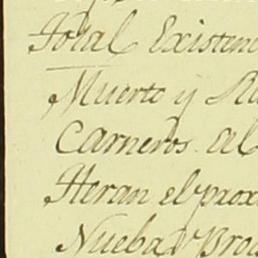 Total Existenc
Muerto y
Carneros al
Heran el prox
Nueba